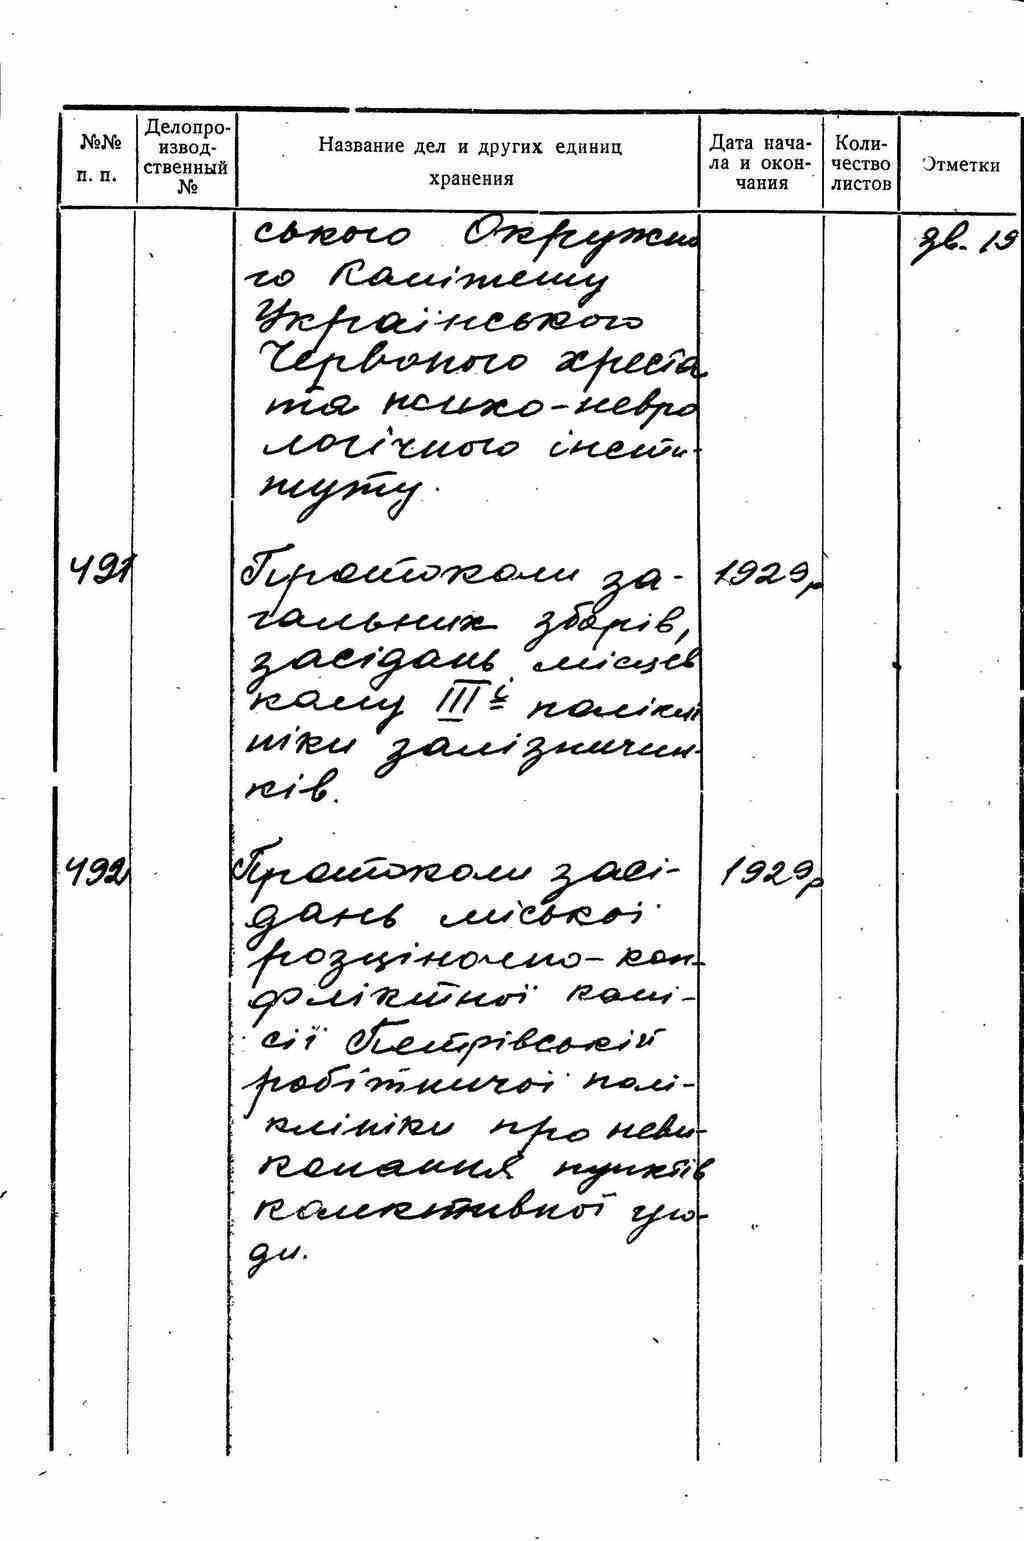 №№ п. п.
Делопро-
извод-
ственный
№
Название дел и других единиц
хранения
Дата нача-
ла и окон-
чания
Коли-
чество
листов
Отметки
ського Окружно
го Комітету
Українського
Червоного хреста
та психо-невро
логічного інсти-
туту.
зв. 19
491
Протоколи за-
гальних зборів,
засідань місцев
кому III ї поліклі
ніки залізнични-
ків.
1929р
492
Протоколи засі-
дань міської
розціночно-кон-
фліктної комі-
сії Петрівській
робітничої полі-
клініки про неви-
конання пунктів
колективної уго-
ди.
1929р